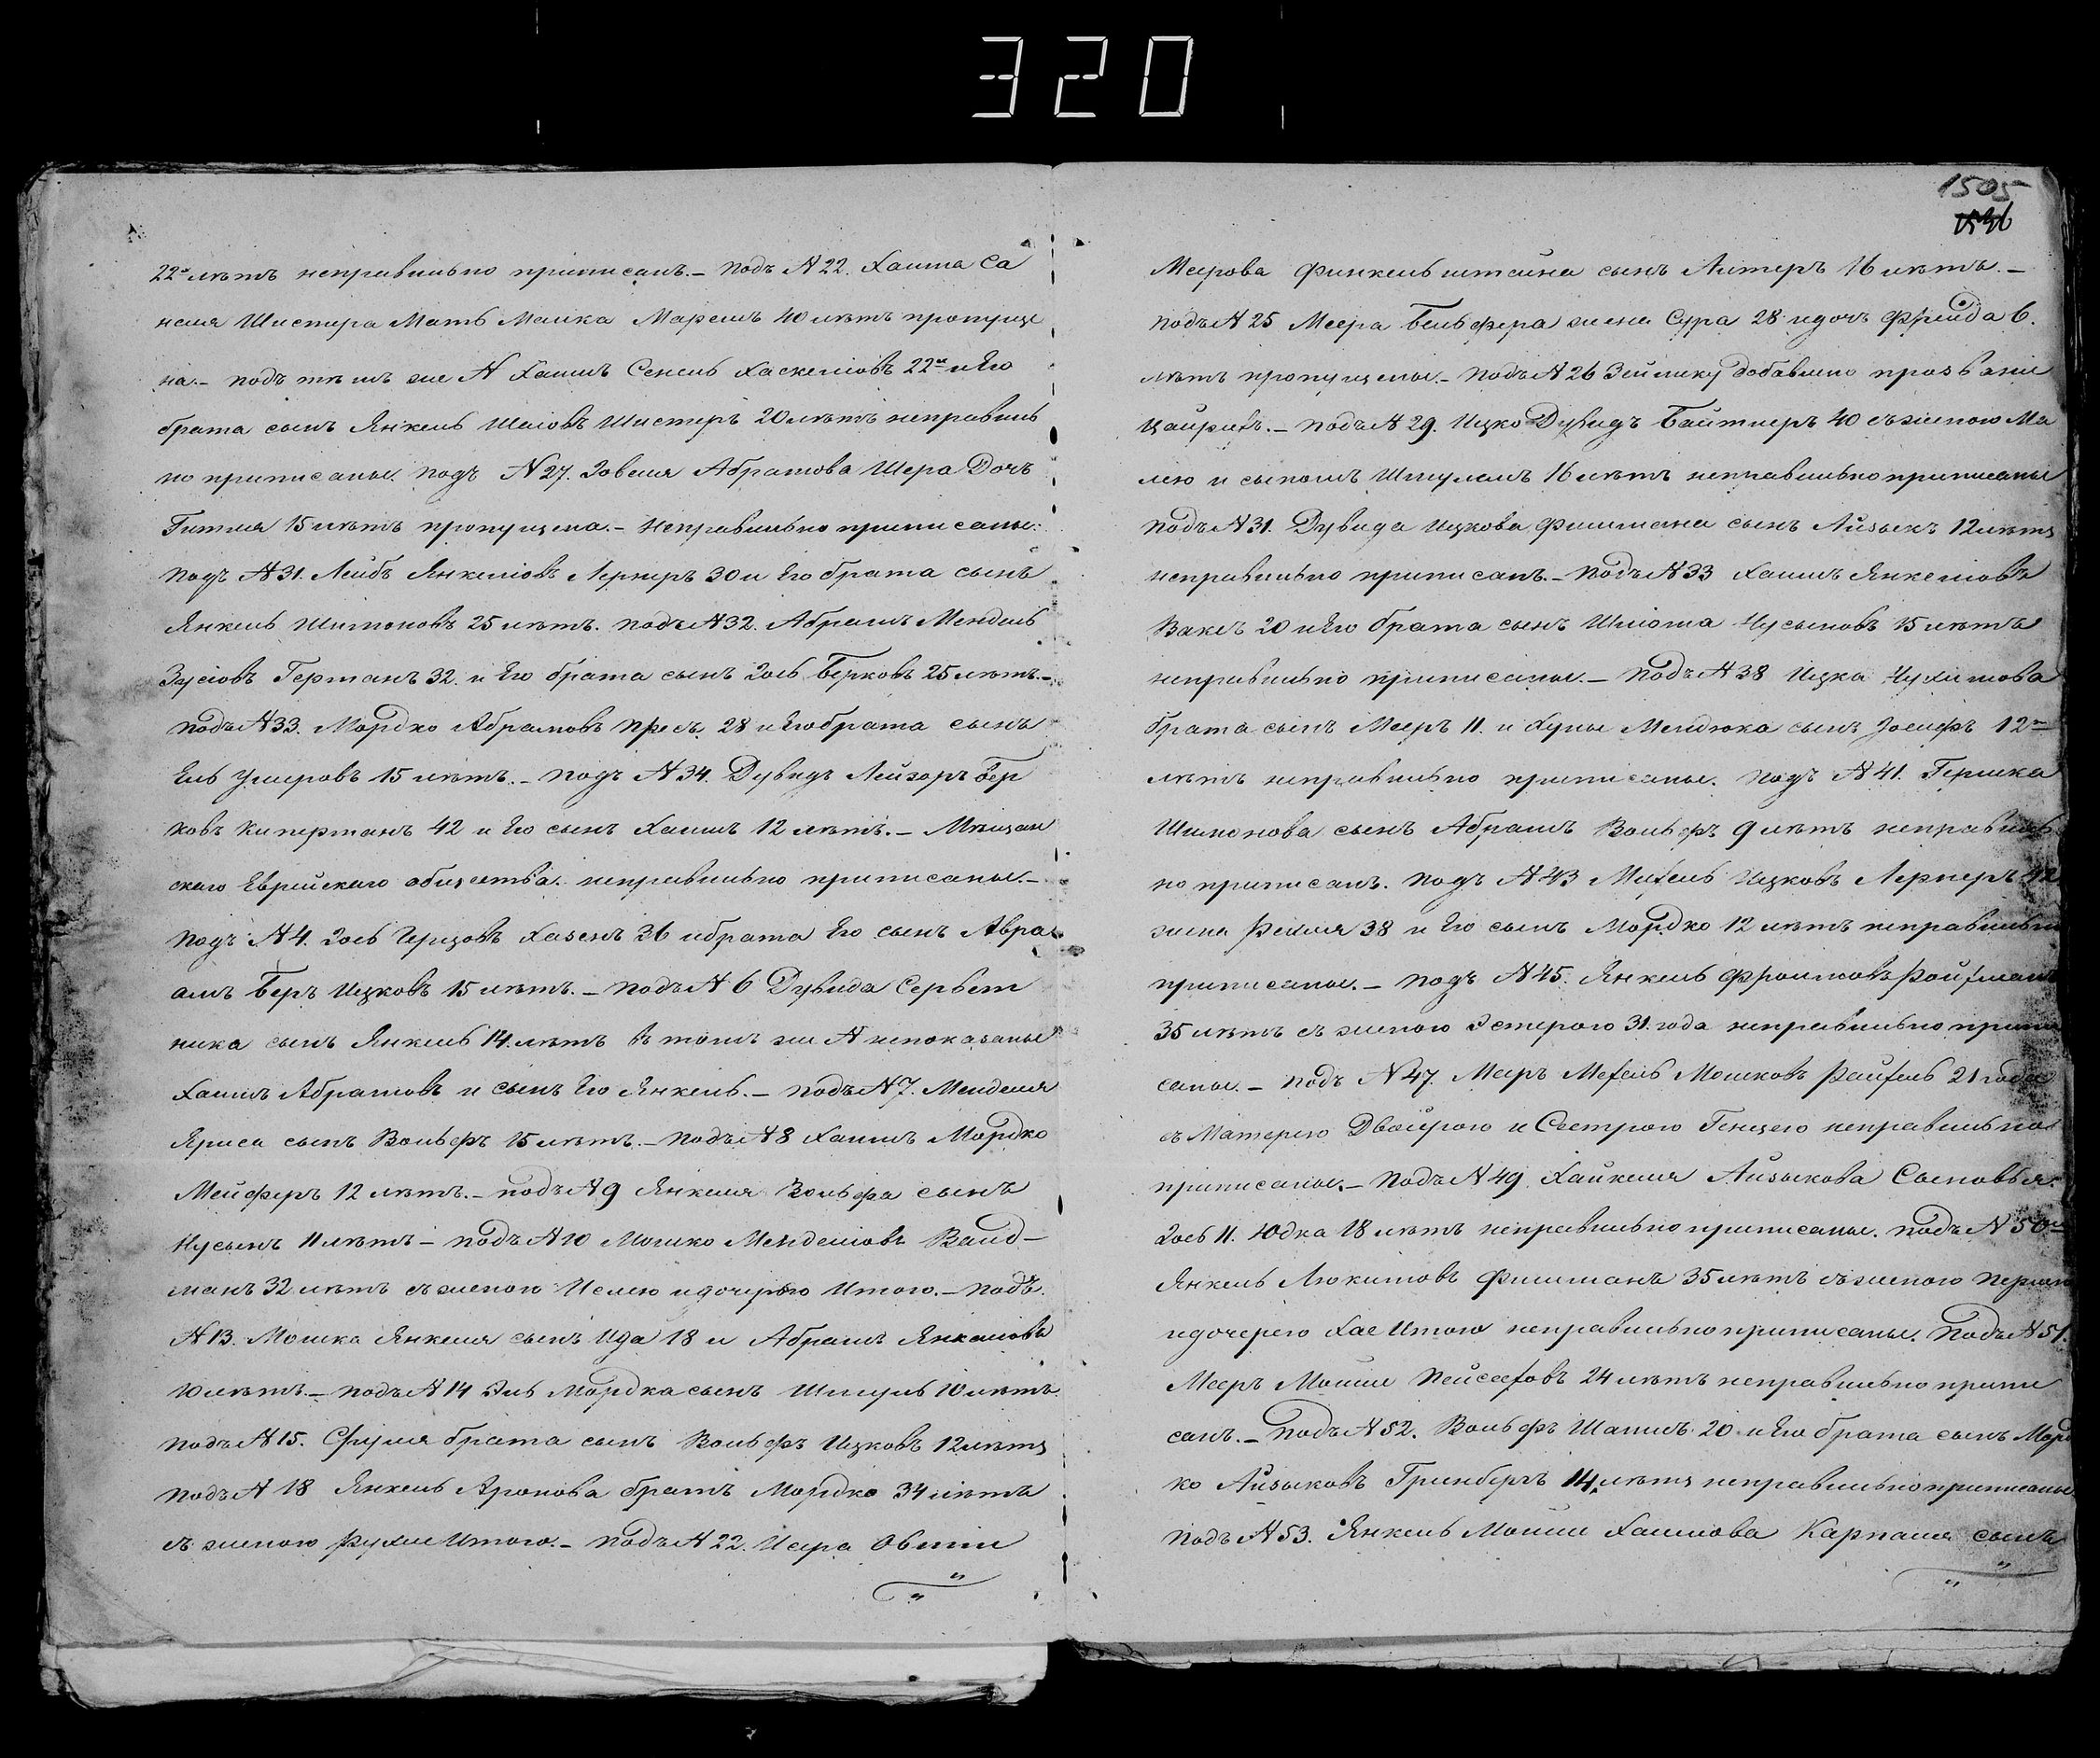 320
22ᵘ лѣтъ неправильно приписанъ.— подъ № 22. Хаима Са
неля Шистера Мать Малка Маремъ 40 лѣтъ пропуще
на.— подъ тѣмъ же № Хаимъ Сенель Хаскелiовъ 22ᵘ и Его
брата сынъ Янкель Шаiовъ Шистеръ 20 лѣтъ неправиль
но приписаны. подъ № 27. Ховеля Абрамова Шера Дочь
Гитля 15 лѣтъ пропущена.— Неправильно приписаны:
подъ № 31. Лейбъ Янкелiовъ Лернеръ 30 и Его брата сынъ
Янкель Шимоновъ 25 лѣтъ. подъ № 32. Абрамъ Мендель
Зусiовъ Германъ 32. и Его брата сынъ Іось Берковъ 25 лѣтъ.—
подъ № 33. Мордко Абрамовъ Пресъ 28 и Его брата сынъ
Ель Умеровъ 15 лѣтъ.— подъ № 34. Дувидъ Лейзоръ Бер
ковъ Киперманъ 42 и Его сынъ Хаимъ 12 лѣтъ.— Мѣщан
скаго Еврейскаго общества. неправильно приписаны.—
подъ № 4. Іось Герцовъ Хазенъ 36 и брата Его сынъ Авра
амъ Беръ Ицковъ 15 лѣтъ.— подъ № 6 Дувида Сервет
ника сынъ Янкель 14. лѣтъ в томъ же № непоказаны
Хаимъ Абрамовъ и сынъ Его Янкель.— подъ № 7. Менделя
Яриса сынъ Вольфъ 15 лѣтъ.— подъ № 8 Хаимъ Мордко
Мейферъ 12 лѣтъ.— подъ № 9 Янкеля Вольфа сынъ
Нусынъ 11 лѣтъ— подъ № 10 Мошко Менделiовъ Ванд—
манъ 32 лѣтъ съ женою Неслею и дочерью Итою.— подъ.
№ 13. Мошка Янкеля сынъ Ида 18 и Абрамъ Янкелiовъ
10 лѣтъ.— подъ № 14 Эль Мордка сынъ Шмуль 10 лѣтъ.
подъ № 15. Сруля брата сынъ Вольфъ Ицковъ 12 лѣтъ
подъ № 18 Янкель Аронова братъ Мордко 34 лѣтъ
съ женою Рухле Итою.— подъ № 22. Исера Овши
1505
Меерова Финкельштейна сынъ Литеръ 16 лѣтъ.—
подъ № 25 Меера Бельфера жена Сура 28 и дочь Фрейда 6.
лѣтъ пропущены.— подъ № 26 Зейлику добавлено прозванiе
Цайрихъ.— подъ № 29. Ицко Дувидъ Байтлеръ 40 съ женою Ма
лею и сыномъ Шмулемъ 16 лѣтъ неправильно приписаны
подъ № 31. Дувида Ицкова Фишмана сынъ Айзыкъ 12 лѣтъ
неправильно приписанъ.— подъ № 33 Хаимъ Янкелiовъ
Ваксъ 20 и Его брата сынъ Шліома Нусыновъ 15 лѣтъ
неправильно приписаны.— подъ № 38 Ицка Нухимова
брата сынъ Мееръ 11. и Хуны Мендюка сынъ Іосифъ 12ᵘ
лѣтъ неправильно приписаны. подъ № 41. Гершка
Шимонова сынъ Абрамъ Вольфъ 9 лѣтъ неправиль
но приписанъ. подъ № 43 Михель Ицковъ Лернеръ 42
жена Рейзля 38 и Его сынъ Мордко 12 лѣтъ неправильно
приписаны.— подъ № 45. Янкель Фроимовъ Ройхманъ
35 лѣтъ съ женою Эстерою 31. года неправильно припи
саны.— подъ № 47. Меръ Мехель Мошковъ Райхель 21 года
съ Матерею Двойрою и Сестрою Генцею неправильно
приписаны.— подъ № 49. Хайкеля Айзыкова Сыновья:
Іось 11. Юдка 18 лѣтъ неправильно приписаны. подъ № 50ᵘ
Янкель Люкимовъ Фишманъ 35 лѣтъ съ женою Перлею
и дочерею Хае Итою неправильно приписаны. подъ № 51.
Мееръ Мошии Пейсаховъ 24 лѣтъ неправильно припи
санъ.— подъ № 52. Вольфъ Шапшъ 20. и Его брата сынъ Морд
ко Айзыковъ Гринберъ 14. лѣтъ неправильно приписаны
подъ № 53. Янкель Мошии Хаимова Карпаля сынъ